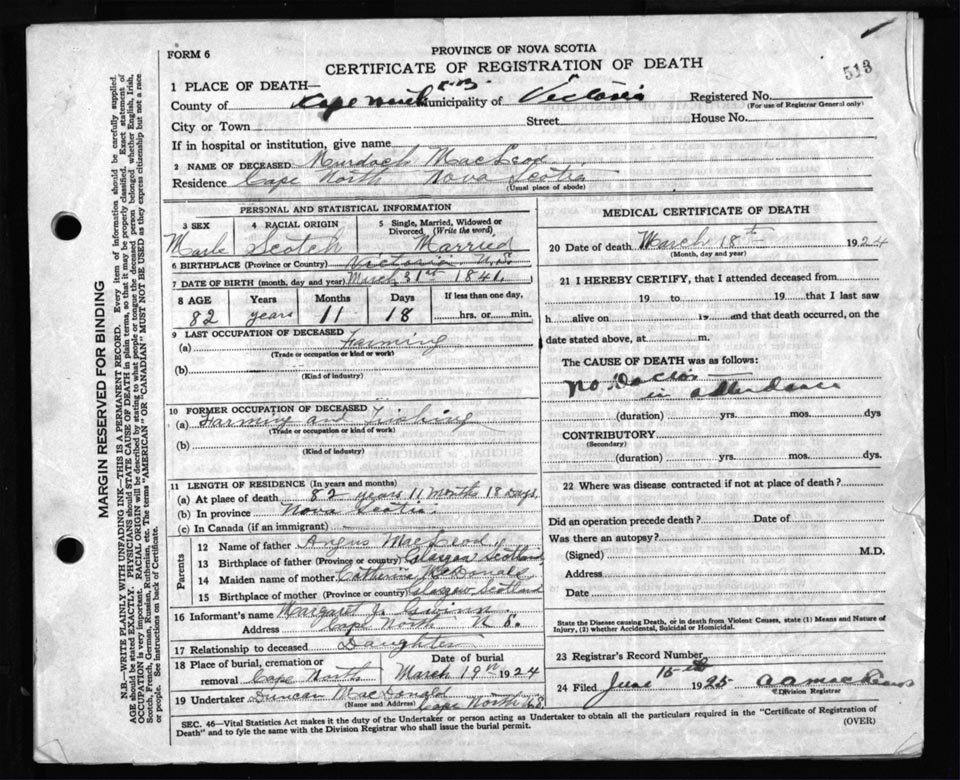 513
PROVINCE OF NOVA SCOTIA
FORM 6
CERTIFICATE OF REGISTRATION OF DEATH
1 PLACE OF DEATH—
County of Cape North C.B. Municipality of Victoria Registered No.
(For use of Registrar General only)
City or Town Street House No.
If in hospital or institution, give name
2 NAME OF DECEASED Murdoch MacLeod
Residence Cape North Nova Scotia
(Usual place of abode)
PERSONAL AND STATISTICAL INFORMATION
3 SEX 4 RACIAL ORIGIN 5 Single, Married, Widowed or Divorced (Write the word)
Male Scotch Married
6 BIRTHPLACE (Province or Country) Victoria N.S.
7 DATE OF BIRTH (month, day and year) March 31st 1841.
8 AGE Years Months Days If less than one day,
82 years 11 18 hrs. or min.
9 LAST OCCUPATION OF DECEASED
(a) Farming
(Trade or occupation or kind or work)
(b)
(Kind of industry)
10 FORMER OCCUPATION OF DECEASED
(a) Farming and Fishing
(Trade or occupation or kind of work)
(b)
(Kind of industry)
11 LENGTH OF RESIDENCE (In years and months)
(a) At place of death 82 years 11 months 18 Days,
(b) In province Nova Scotia
(c) In Canada (if an immigrant)
Parents
12 Name of father Angus MacLeod
13 Birthplace of father (Province or Country) Glasgow Scotland
14 Maiden name of mother Catherine McDonald
15 Birthplace of mother (Province or country) Glasgow Scotland
16 Informant's name Margaret J.
Address Cape North N S.
17 Relationship to deceased Daughter
18 Place of burial, cremation or removal Cape North Date of burial March 19th 1924
19 Undertaker Duncan MacDonald Cape North N.S.
(Name and Address)
MEDICAL CERTIFICATE OF DEATH
20 Date of death March 18th 1924
(Month, day and year)
21 I HEREBY CERTIFY, that I attended deceased from
19 to 19 that I last saw
h alive on 19 and that death occurred, on the
date stated above, at m.
The CAUSE OF DEATH was as follows:
No Doctor
in attendance
(duration) yrs. mos. dys
CONTRIBUTORY
(Secondary)
(duration) yrs. mos. dys.
22 Where was disease contracted if not at place of death?
Did an operation precede death? Date of
Was there an autopsy?
(Signed) M.D.
Address
Date
State the Disease causing Death, or in death from Violent Causes, state (1) Means and Nature of Injury, (2) whether Accidental, Suicidal or Homicidal.
23 Registrar's Record Number
24 Filed June 15th 1925
Division Registrar
SEC. 46—Vital Statistics Act makes it the duty of the Undertaker or person acting as Undertaker to obtain all the particulars required in the "Certificate of Registration of
Death" and to fyle the same with the Division Registrar who shall issue the burial permit.
(OVER)
MARGIN RESERVED FOR BINDING
N.B.—WRITE PLAINLY WITH UNFADING INK—THIS IS A PERMANENT RECORD. Every item of information should be carefully supplied.
AGE should be stated EXACTLY. PHYSICIANS should STATE CAUSE OF DEATH in plain terms, so that it may be properly classified. Exact statement of
OCCUPATION is very important. RACIAL ORIGIN will be described by stating to what people or tongue the deceased person belonged whether English, Irish,
Scotch, French, German, Russian, Ruthenian, etc. The terms "AMERICAN" OR "CANADIAN" MUST NOT BE USED as they express citizenship but not a race
or people. See instructions on back of Certificate.